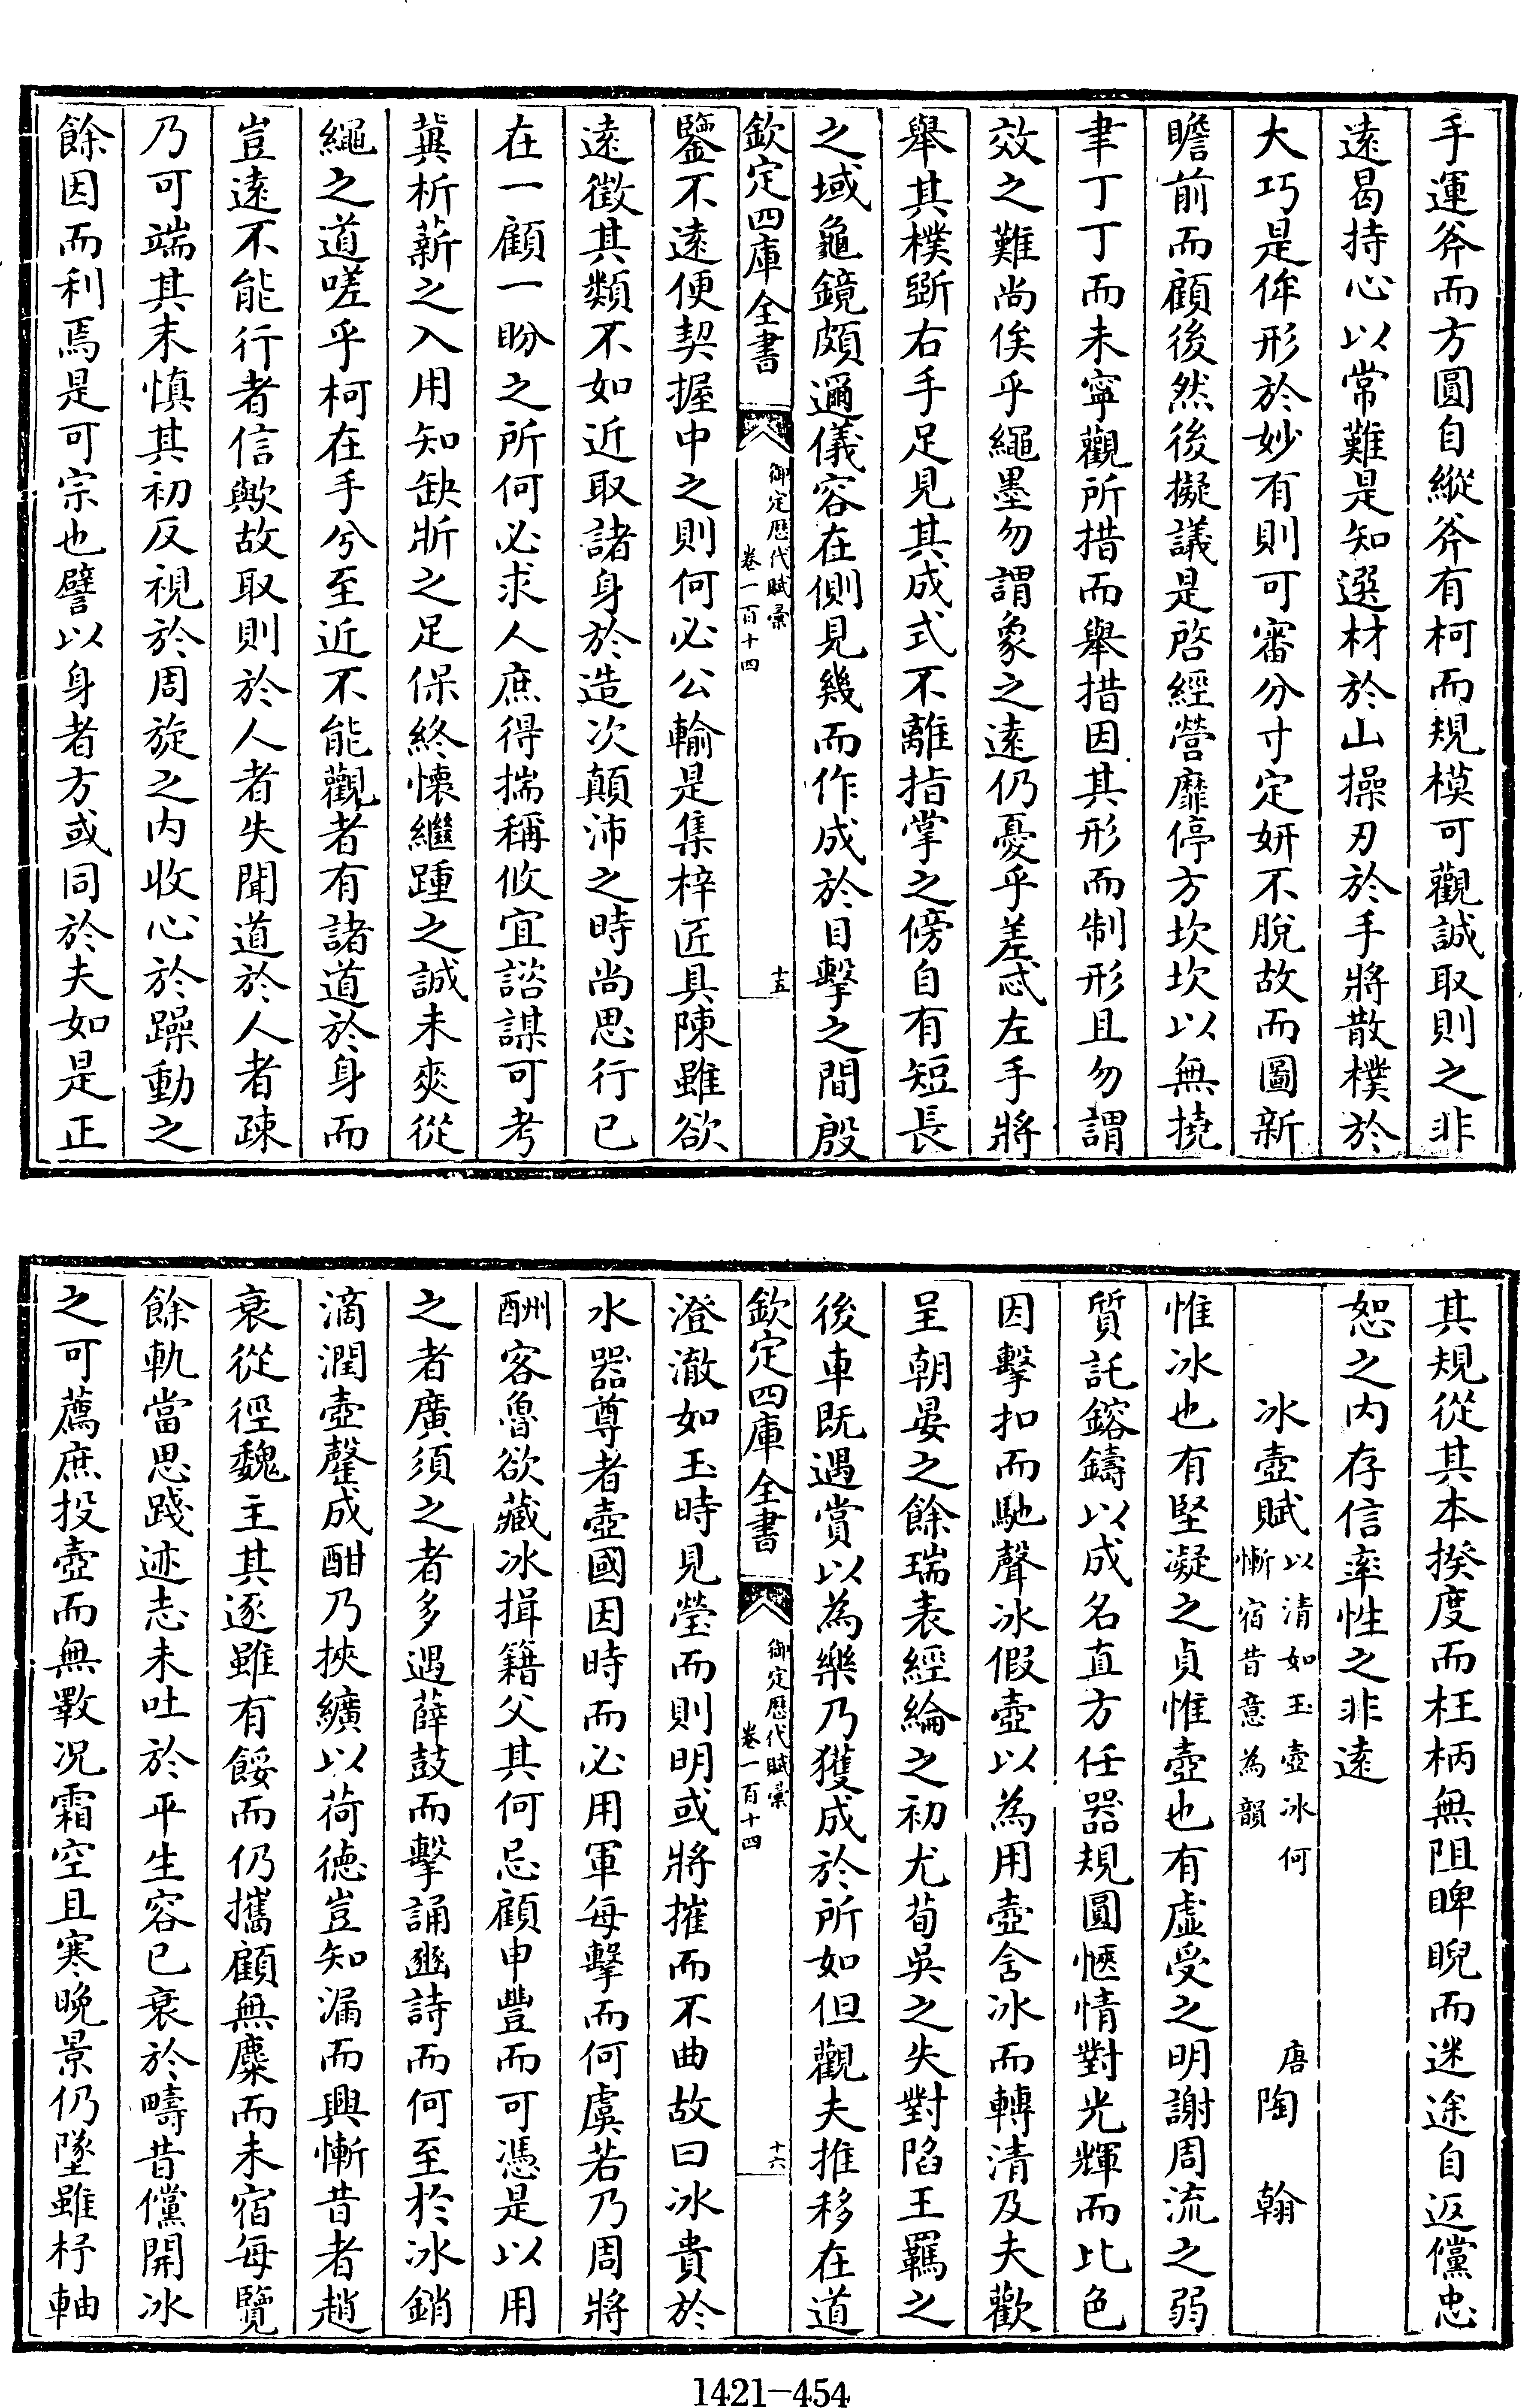 手運斧而方圓自縱斧有柯而規模可觀誠取則之非
遠曷持心以常難是知選材於山操刃於手將散樸於
大巧是侔形於妙有則可審分寸定妍不脫故而圖新
瞻前而顧後然後擬議是啓經營靡停方坎坎以無撓
聿丁丁而未寧觀所措而舉措因其形而制形且勿謂
效之難尚俟乎繩墨勿謂象之遠仍憂乎差忒左手將
舉其樸斵右手足見其成式不離指掌之傍自有短長
之域龜鏡頗邇儀容在側見幾而作成於目擊之間殷
欽定四庫全書
御定歷代賦彙
卷一百十四
十五
鑒不遠便契握中之則何必公輸是集梓匠具陳雖欲
遠徵其類不如近取諸身於造次顛沛之時尚思行已
在一顧一盼之所何必求人庶得揣稱攸宜諮謀可考
冀析薪之入用知缺斨之足保終懷繼踵之誠未爽從
繩之道嗟乎柯在手兮至近不能觀者有諸道於身而
豈遠不能行者信歟故取則於人者失聞道於人者疎
乃可端其末慎其初反視於周旋之内收心於躁動之
餘因而利焉是可宗也譬以身者方或同於夫如是正
其規從其本揆度而枉柄無阻睥睨而迷途自返儻忠
恕之内存信率性之非遠
冰壺賦以清如玉壺冰何
慚宿昔意為韻
唐陶翰
惟冰也有堅凝之貞惟壺也有虛受之明謝周流之弱
質託鎔鑄以成名直方任器規圓愜情對光輝而比色
因擊扣而馳聲冰假壺以為用壺含冰而轉清及夫歡
呈朝晏之餘瑞表經綸之初尤荀吳之失對陷王羈之
後車既遇賞以為樂乃獲成於所如但觀夫推移在道
欽定四庫全書
御定歷代賦彙
卷一百十四
十六
澄澈如玉時見瑩而則明或將摧而不曲故曰冰貴於
水器尊者壺國因時而必用軍每擊而何虞若乃周將
酬客魯欲藏冰揖籍父其何忌顧申豐而可憑是以用
之者廣須之者多遇薛鼓而擊誦豳詩而何至於冰銷
滴潤壺罄成酣乃挾纊以荷德豈知漏而興慚昔者趙
衰從徑魏主其逐雖有餒而仍攜顧無麋而未宿每覽
餘軌當思踐迹志未吐於平生容已衰於疇昔儻開冰
之可薦庶投壺而無斁况霜空且寒晚景仍墜雖杼軸
1421-454